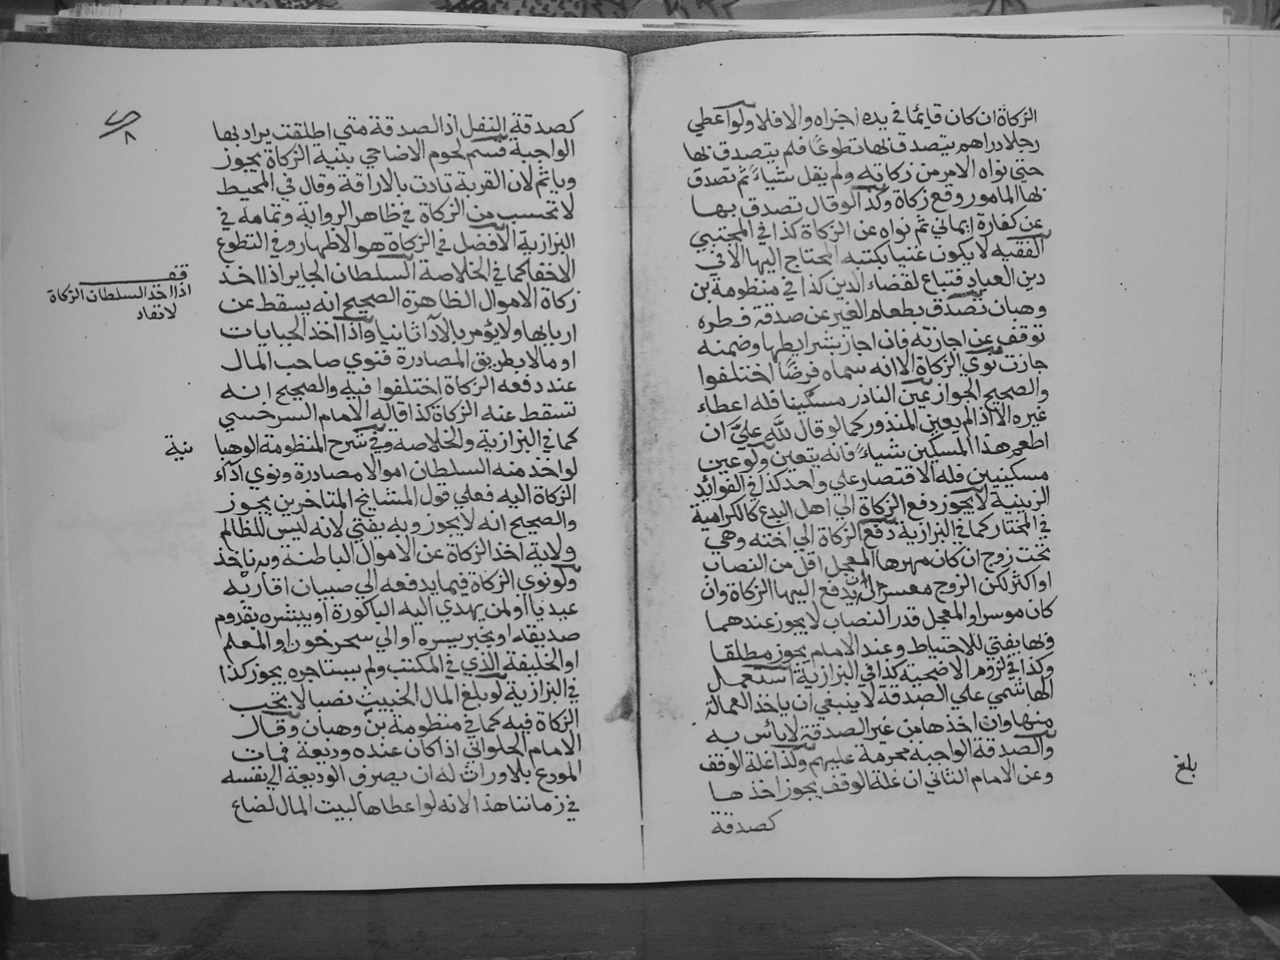 الزكاة ان كان قايما في يده اجزاه والا فلا ولو اعطي
رجلا دراهم يتصدق بها تطوعا فلم يتصدق بها
حتى نواه الامر من زكاته ولم يقل شياء ثم تصدق
بها المامور وقع زكاة وكذا لو قال تصدق بها
عن كفارة ايماني ثم نواه عن الزكاة كذا في المجتبي
الفقيه لا يكون غنيا بكتبه المحتاج اليها الا في
دين العباد فتباع لقضاء الدين كذا في منظومة بن
وهبان تصدق بطعام الغير عن صدقة فطره
توقف عن اجازته فان اجاز بشرايطها وضمنه
جازت نوي الزكاة الا انه سماه فرضا اختلفوا
والصحيح الجواز عين الناذر مسكينا فله اعطاء
غيره الا اذا لم يعين المنذور كما لو قال لله علي ان
اطعم هذا المسكين شياء فانه يتعين ولو عين
مسكينين فله الاقتصار علي واحد كذا في الفوائد
الزينية لا يجوز دفع الزكاة الي اهل البدع كالكرامية
في المختار كما في البزازية دفع الزكاة الي اخته وهي
تحت زوج ان كان مهرها المعجل اقل من النصاب
او اكثر لكن الزوج معسر له ان يدفع اليها الزكاة وان
كان موسرا و المعجل قدر النصاب لا يجوز عندهما
وبها يفتي للاحتياط وعند الامام يجوز مطلقا
وكذا في لزوم الاضحية كذا في البزازية استعمل
الهاشمي علي الصدقة لا ينبغي ان ياخذ العمالة
منها وان اخذها من غير الصدقة لا باس به
والصدقة الواجبة محرمة عليهم وكذا غلة الوقف
وعن الامام الثاني ان غلة الوقف يجوز اخذها
كصدقة
بلغ
كصدقة النفل اذ الصدقة متي اطلقت يراد بها
الواجبة قسم لحوم الاضاحي بنية الزكاة يجوز
وياثم لان القربة تادت بالاراقة وقال في المحيط
لا تحسب من الزكاة في ظاهر الرواية وتمامه في
البزازية الافضل في الزكاة هو الاظهار وفي التطوع
الاخفا كما في الخلاصة السلطان الجاير اذا اخذ
زكاة الاموال الظاهرة الصحيح انه يسقط عن
اربابها ولا يؤمر بالاداء ثانيا واذا اخذ الجبايات
او مالا بطريق المصادرة فنوي صاحب المال
عند دفعه الزكاة اختلفوا فيه والصحيح انه
تسقط عنه الزكاة كذا قاله الامام السرخسي
كما في البزازية والخلاصة وفي شرح المنظومة الوهبا
نية
لو اخذ منه السلطان اموالا مصادرة ونوي اداء
الزكاة اليه فعلي قول المشايخ المتاخرين يجوز
والصحيح انه لا يجوز وبه يفتي لانه ليس للظالم
ولاية اخذ الزكاة عن الاموال الباطنة وبه ناخذ
ولو نوي الزكاة فيما يدفعه الي صبيان اقاربه
عيديا او لمن يهدي اليه الباكورة او يبشره بقدوم
صديقه او بخبر يسره او الي سحرخون او المعلم
او الخليفة الذي في المكتب ولم يستاجره يجوز كذا
في البزازية لو بلغ المال الخبيث نصبا لا يجب
الزكاة فيه كما في منظومة بن وهبان وقال
الامام الحلواني اذا كان عنده وديعة فمات
المودع بلا وراث له ان يصرف الوديعة الي نفسه
في زماننا هذا لانه لو اعطاها لبيت المال لضاع
قف
اذا اخذ السلطان الزكاة
لا تعاد